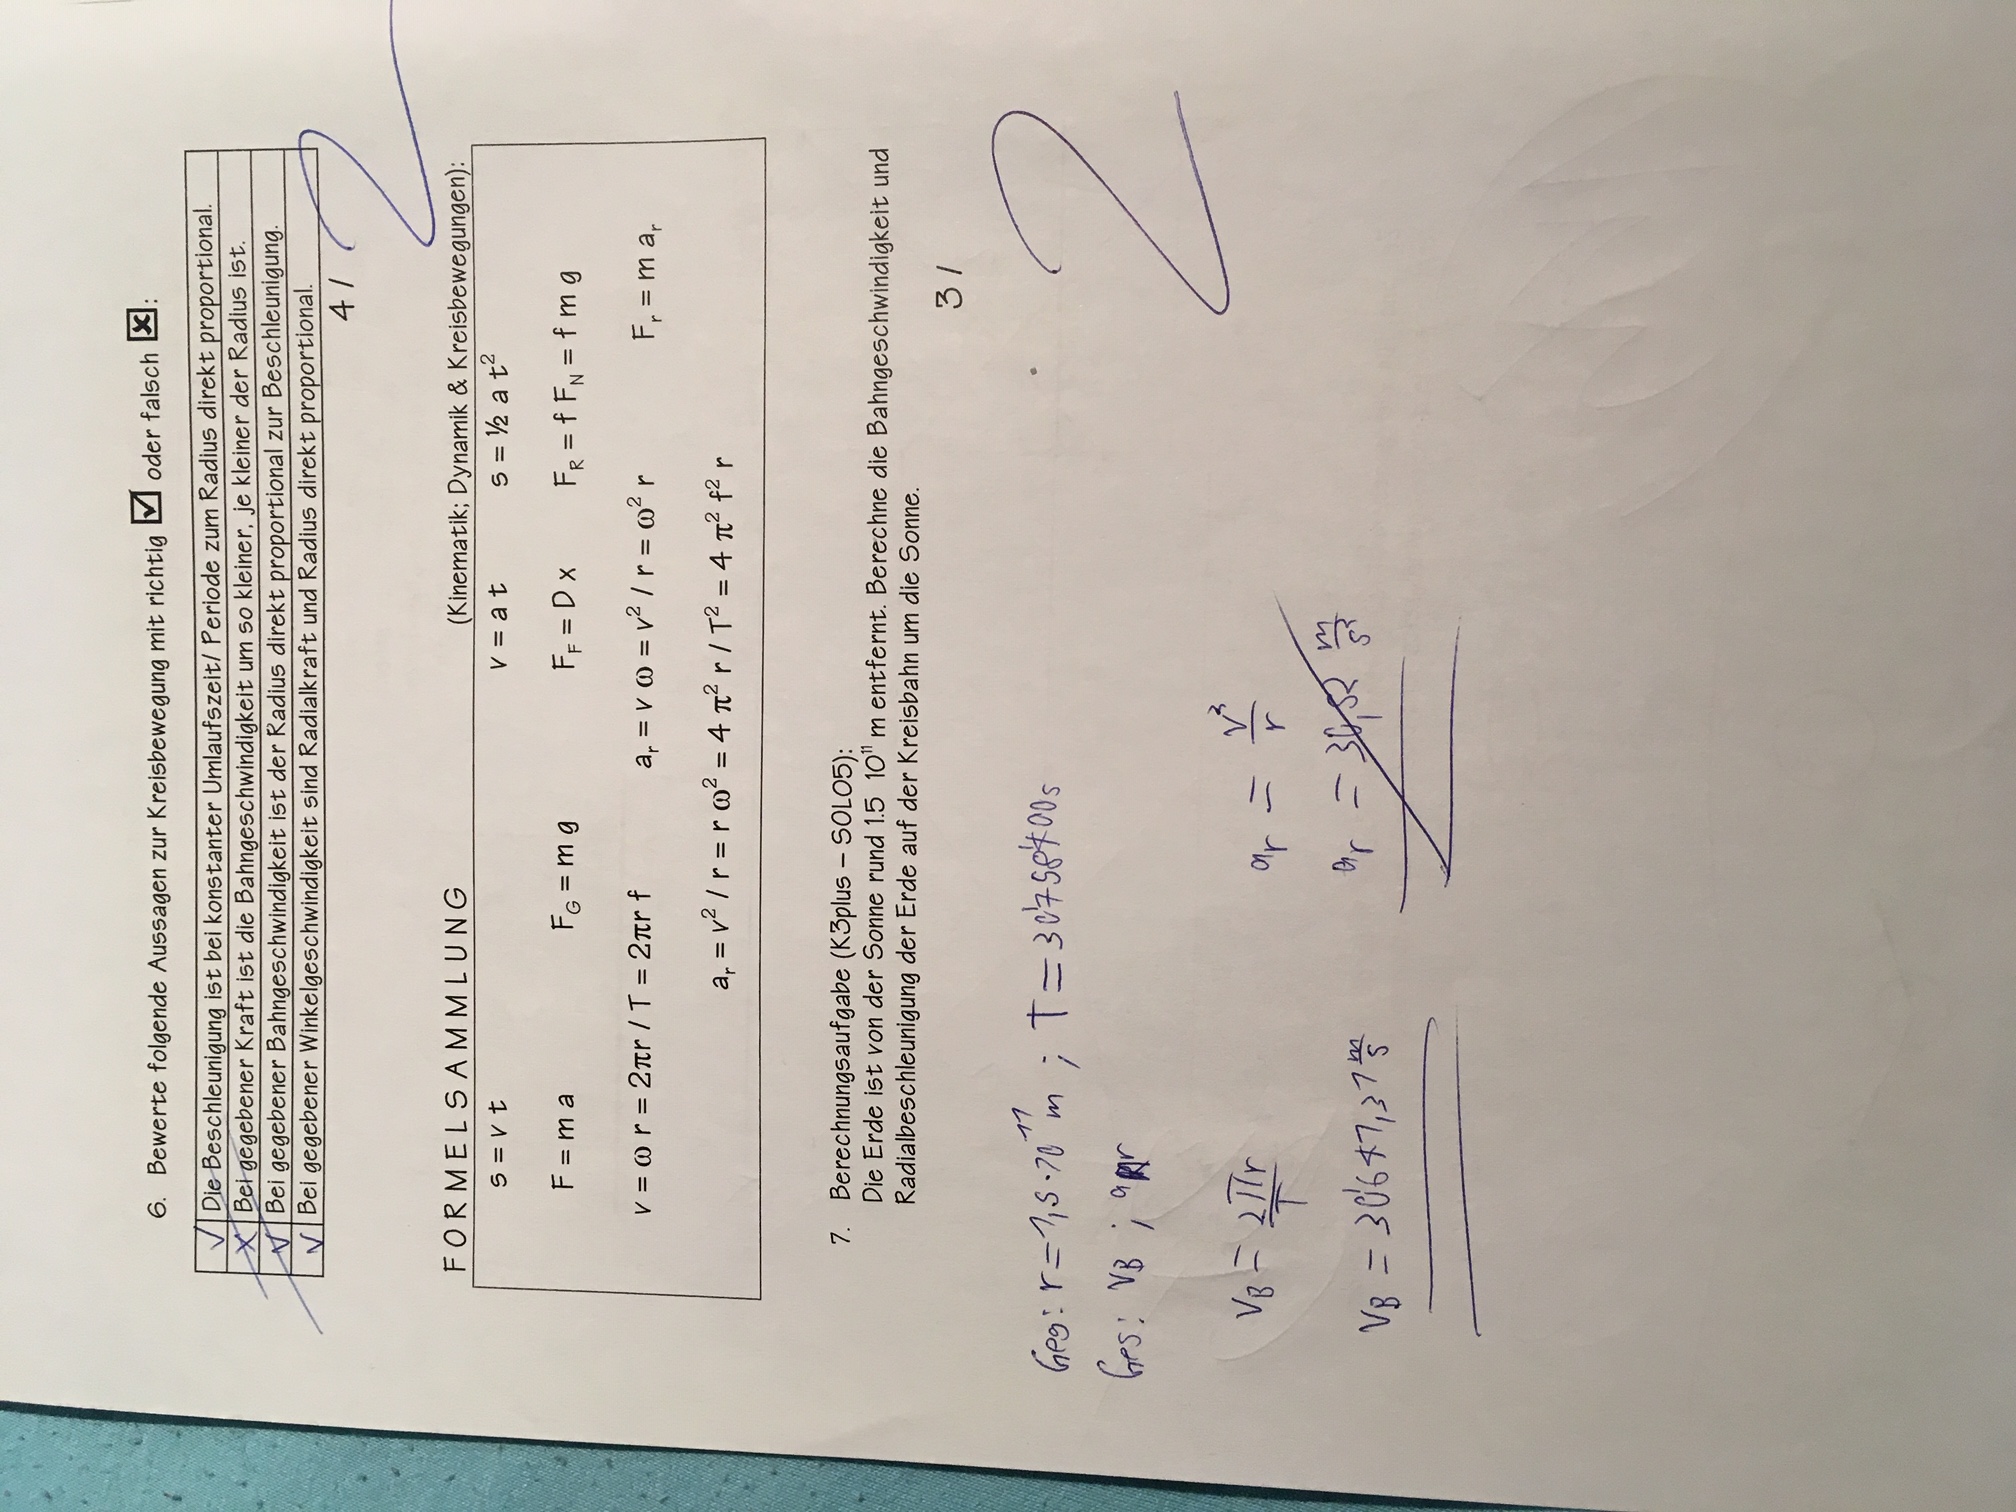 6. Bewerte folgende Aussagen zur Kreisbewegung mit richtig ☑ oder falsch ☒:
✓ Die Beschleunigung ist bei konstanter Umlaufszeit/ Periode zum Radius direkt proportional.
X Bei gegebener Kraft ist die Bahngeschwindigkeit um so kleiner, je kleiner der Radius ist.
✓ Bei gegebener Bahngeschwindigkeit ist der Radius direkt proportional zur Beschleunigung.
✓ Bei gegebener Winkelgeschwindigkeit sind Radialkraft und Radius direkt proportional.
4 / 2
FORMELSAMMLUNG (Kinematik; Dynamik & Kreisbewegungen):
s = v t v = a t s = ½ a t²
F = m a F_G = m g F_F = D x F_R = f F_N = f m g
v = ω r = 2πr / T = 2πr f a_r = v ω = v² / r = ω² r F_r = m a_r
a_r = v² / r = r ω² = 4 π² r / T² = 4 π² f² r
7. Berechnungsaufgabe (K3plus – SOLO5):
Die Erde ist von der Sonne rund 1.5 10¹¹ m entfernt. Berechne die Bahngeschwindigkeit und
Radialbeschleunigung der Erde auf der Kreisbahn um die Sonne.
3 / 2
Geg: r = 1,5·10¹¹ m ; T = 30'758'400s
Ges: v_B ; a_r
v_B = 2πr/T a_r = v²/r
v_B = 30'641,31 m/s a_r = 30,52 m/s²